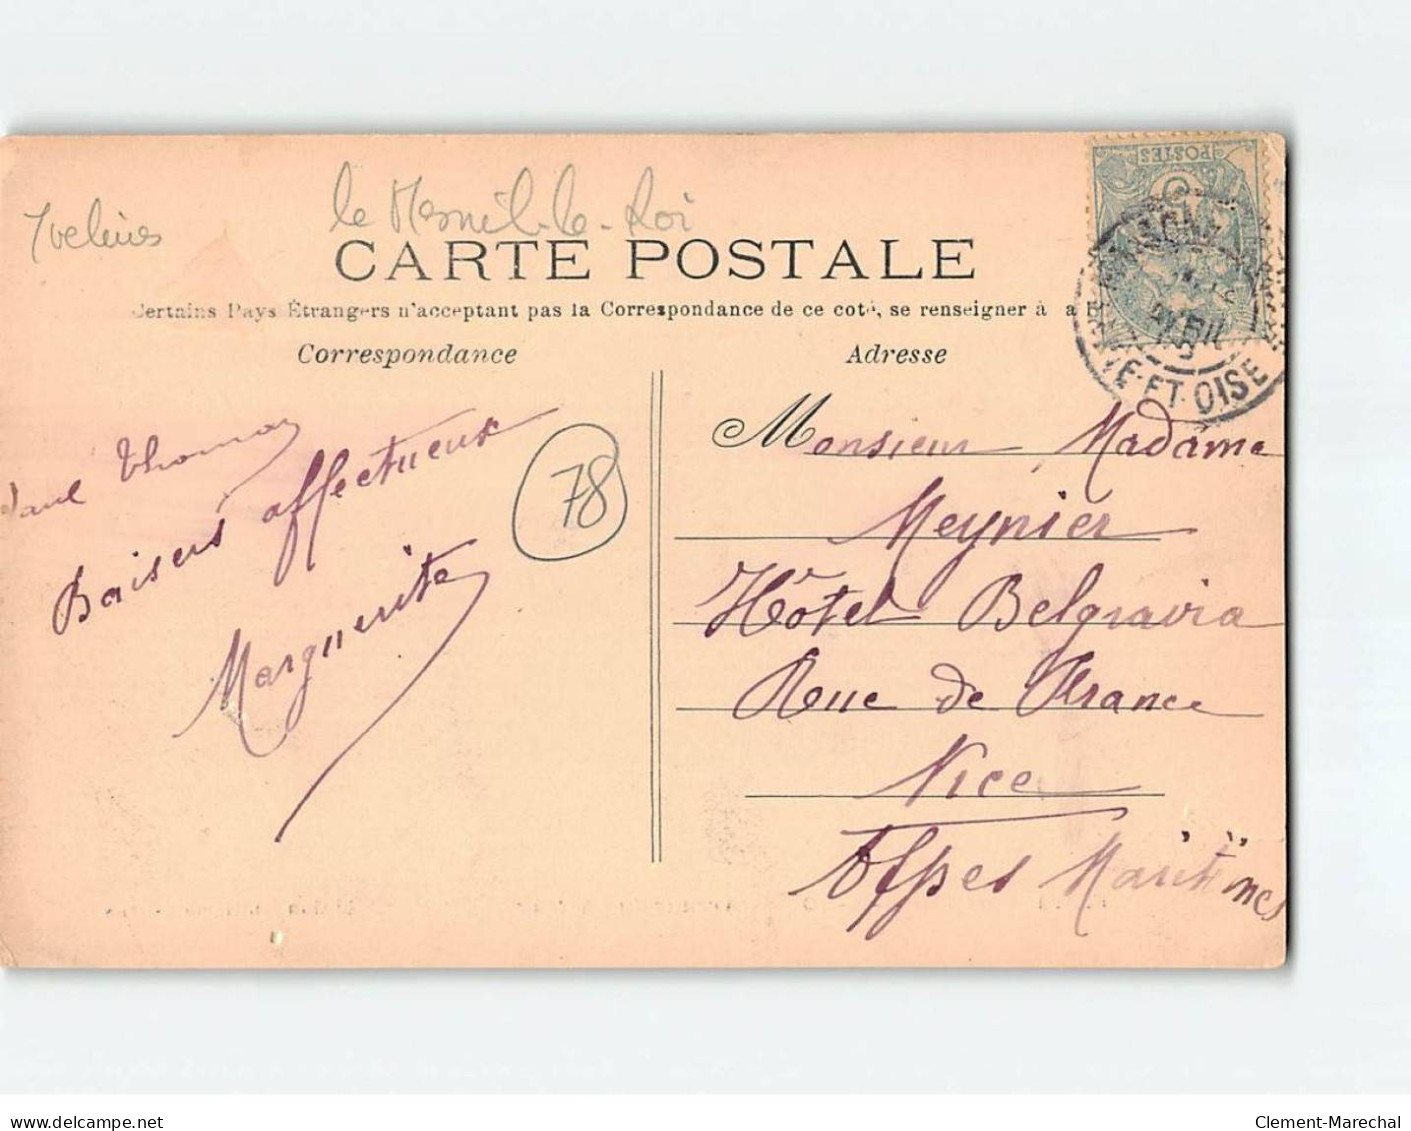 Yvelines
le Mesnil-le-Roi
POSTES
CARTE POSTALE
Certains Pays Étrangers n'acceptent pas la Correspondance de ce coté, se renseigner à
Correspondance
Adresse
AVRIL
ET OISE
Thomas
Baisers affectueux
Marguerite
78
Monsieur Madame
Meynier
Hôtel Belgravia
Rue de France
Nice
Alpes Maritimes
delcampe.net
Clement-Marechal